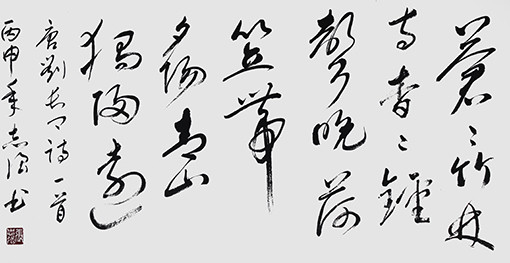 蒼〻竹林
寺杳〻鐘
聲晚荷
笠帶
夕陽青山
獨歸遠
唐劉長卿詩一首
丙申年志書